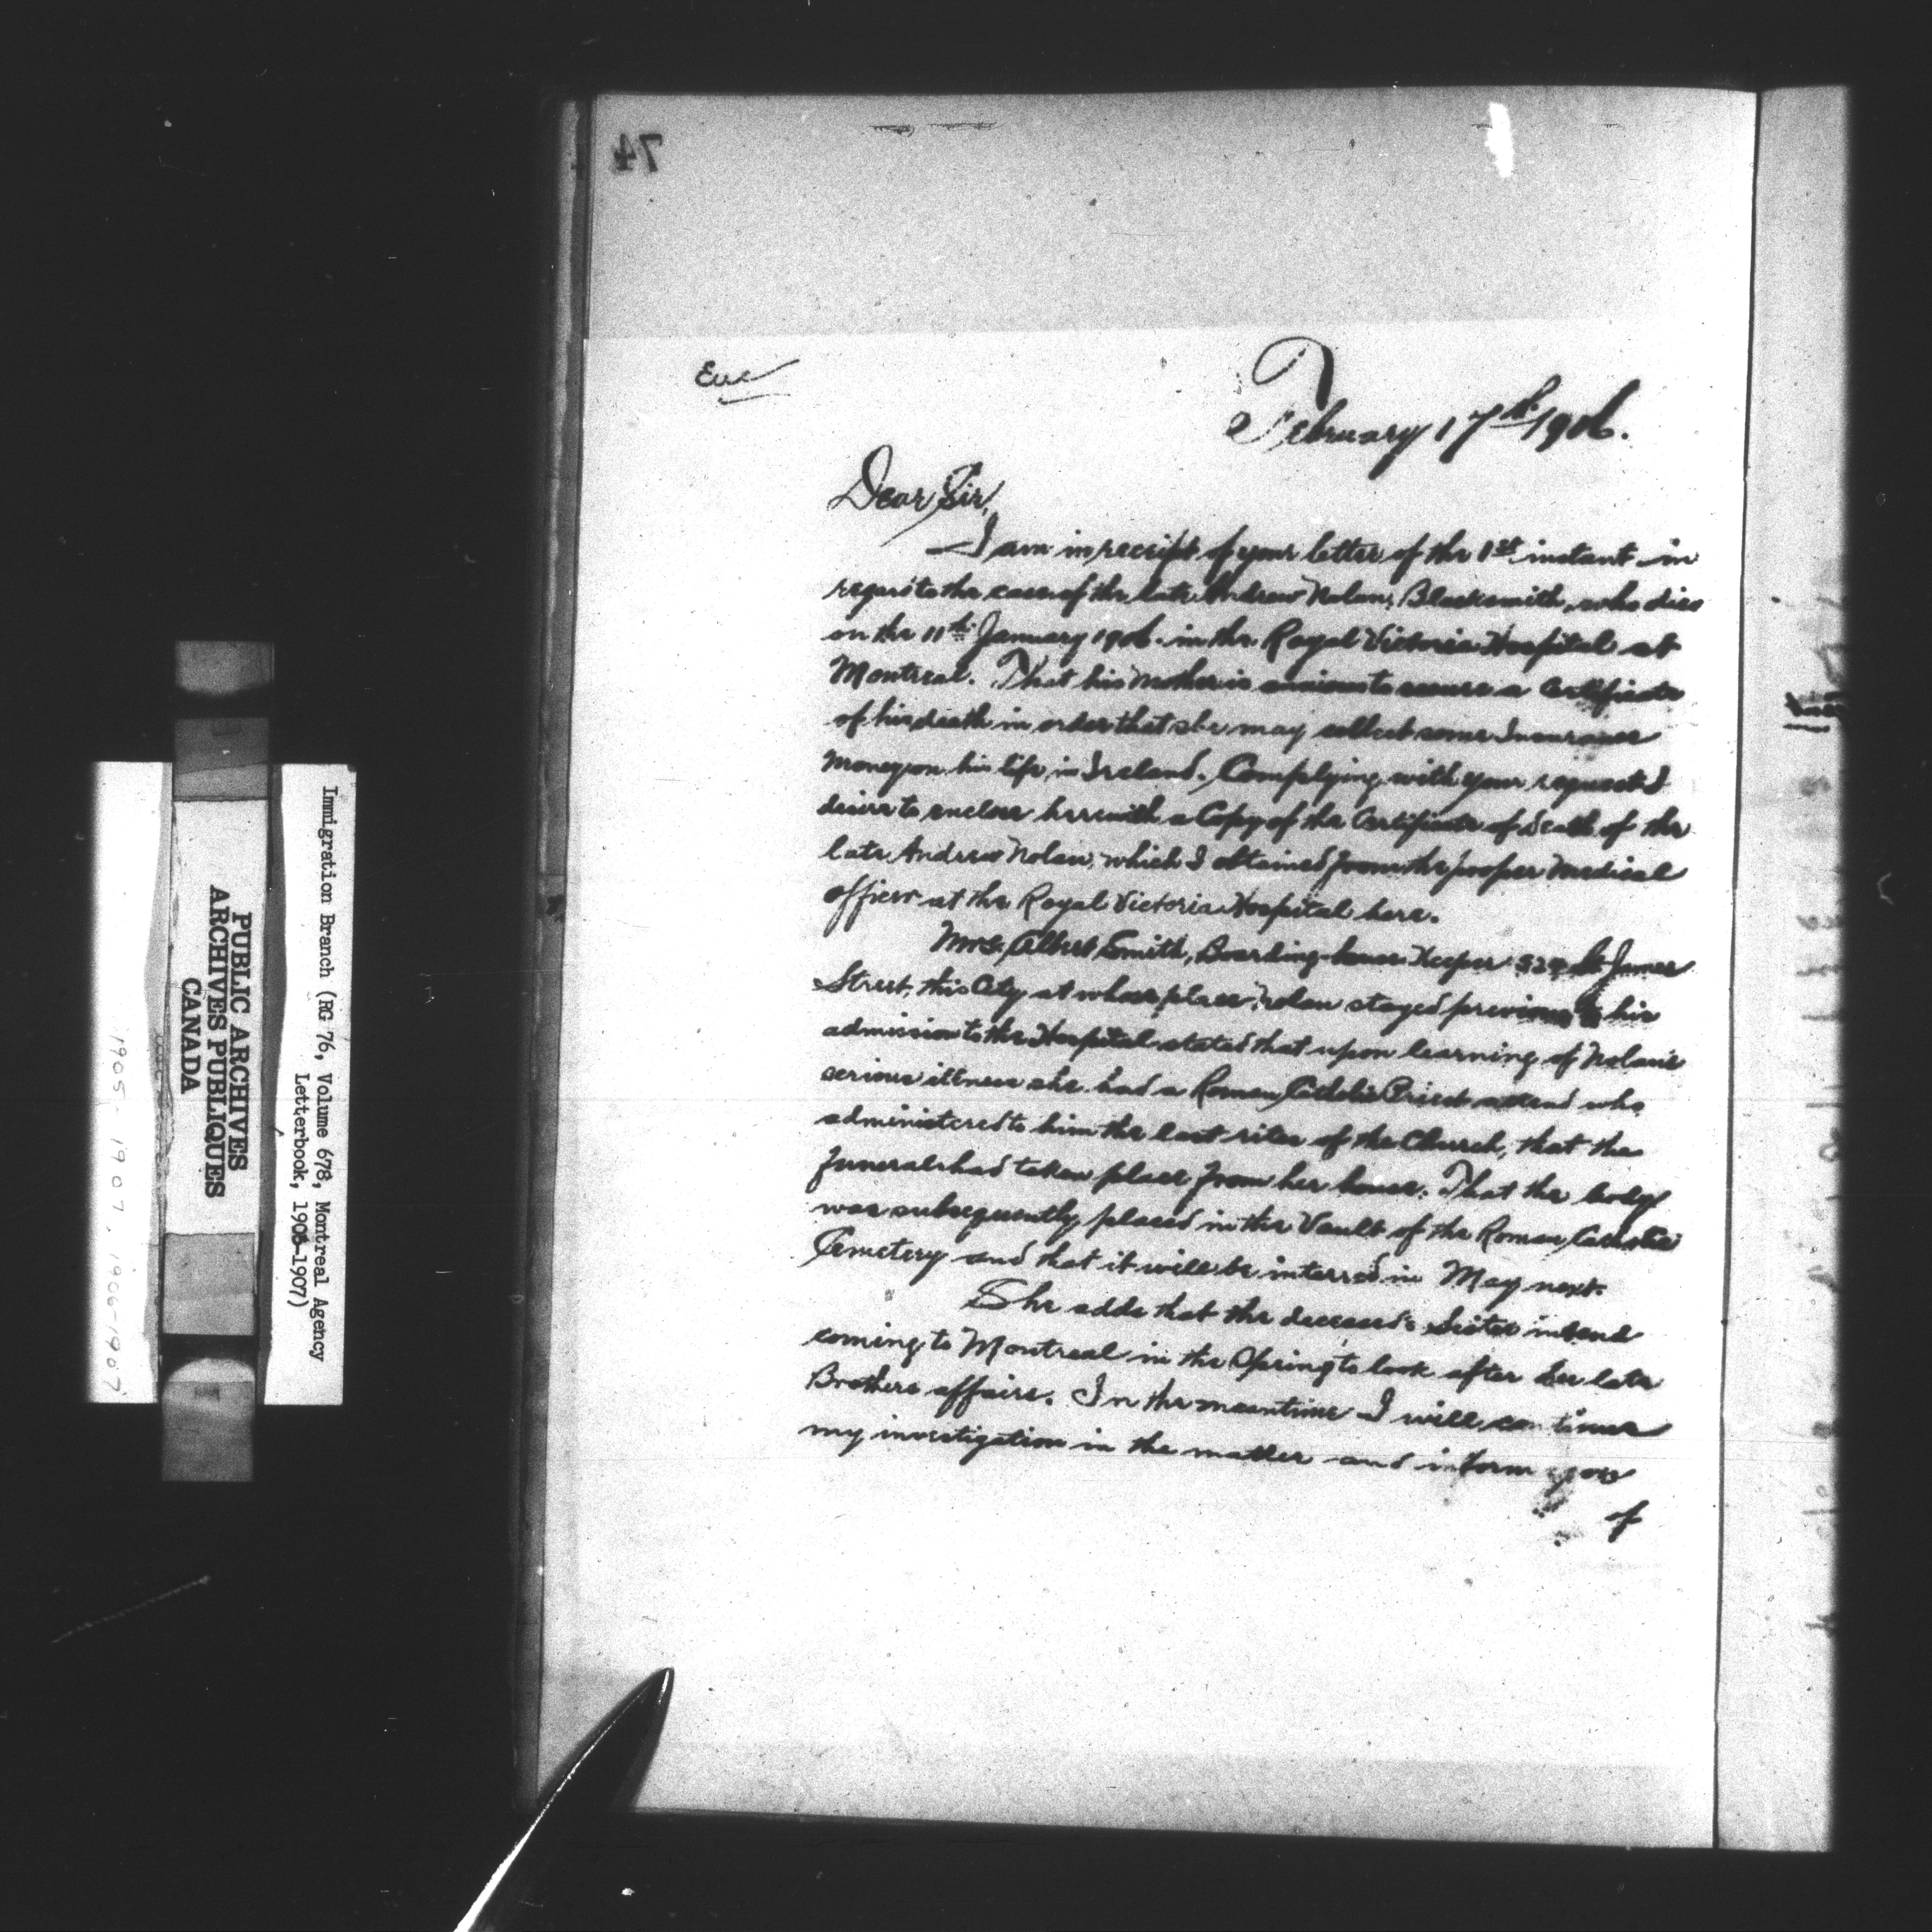 74
Enc
February 17th 1906.
Dear Sir,
I am in receipt of your letter of the 1st instant in
regard to the case of the late Andrew Nolan, Blacksmith, who died
on the 11th January 1906. in the Royal Victoria Hospital at
Montreal. That his Mother is anxious to secure a Certificate
of his death in order that she may collect some Insurance
Money on his life, in Ireland. Complying with your request I
desire to enclose herewith a Copy of the Certificate of death of the
late Andrew Nolan, which I obtained from the proper Medical
officer at the Royal Victoria Hospital here.
Mrs. Albert Smith, Boarding-house Keeper St James
Street, this City at whose place Nolan stayed previous to his
admission to the Hospital stated that upon learning of Nolan's
serious illness she had a Roman Catholic Priest attend who
administered to him the last rites of the Church, that the
funeral had taken place from her house. That the body
was subsequently placed in the Vault of the Roman Catholic
Cemetery and that it will be interred in May next.
She adds that the deceased's Sister intend
coming to Montreal in the Spring to look after her late
Brothers affairs. In the meantime I will continue
my investigation in the matter and inform you
of
Immigration Branch (RG 76, Volume 678, Montreal Agency
Letterbook, 1906-1907)
PUBLIC ARCHIVES
ARCHIVES PUBLIQUES
CANADA
1905-1907, 1906-1907